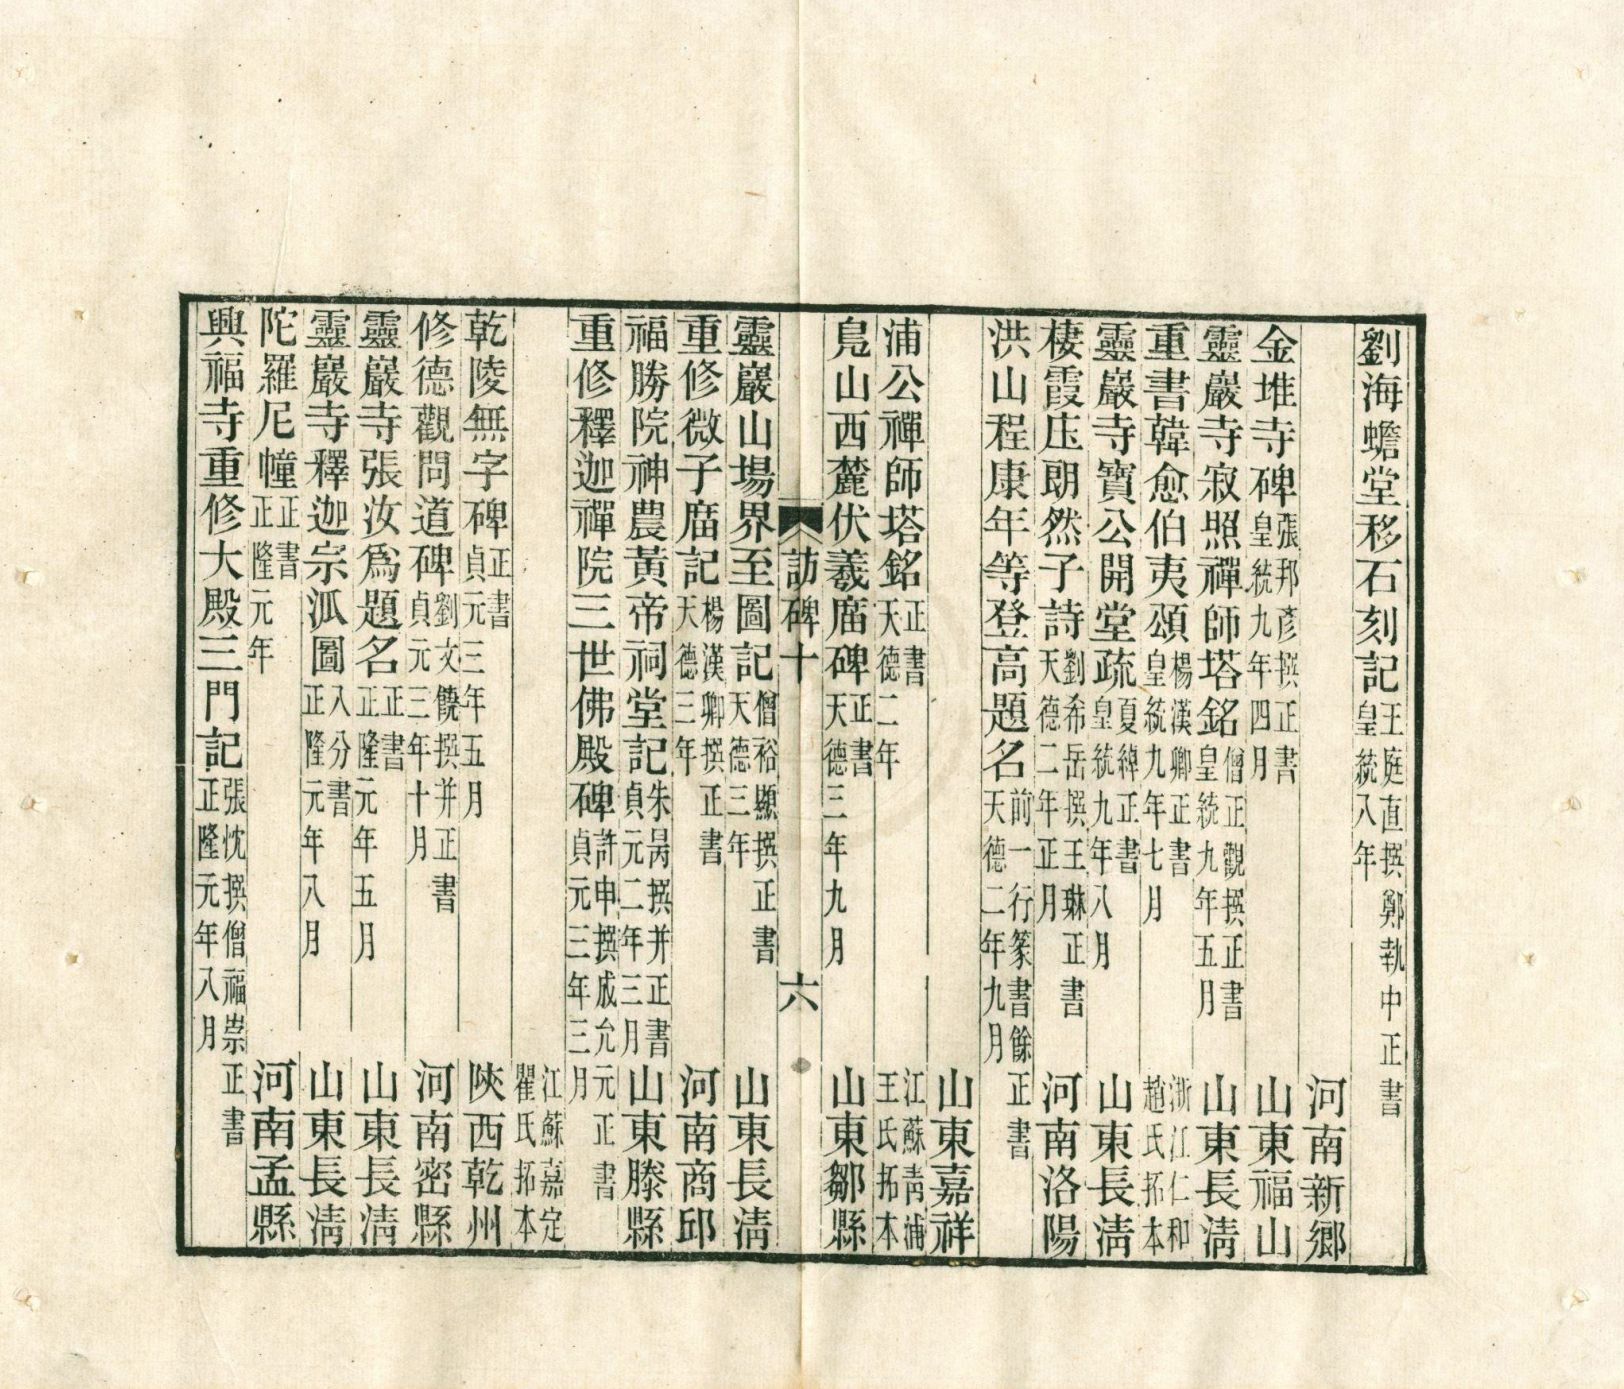 劉海蟾堂移石刻記王庭直撰鄭執中正書皇統八年
河南新鄉
金堆寺碑張邦彥撰正書皇統九年四月 山東福山
靈巖寺寂照禪師塔銘僧正觀撰正書皇統九年五月 山東長淸
重書韓愈伯夷頌楊漢卿正書皇統九年七月 浙江仁和趙氏拓本
靈巖寺寶公開堂疏夏綽正書皇統九年八月 山東長淸
棲霞庄朗然子詩劉希岳撰王琳正書天德二年正月 河南洛陽
洪山程康年等登高題名前一行篆書餘正書天德二年九月
山東嘉祥
浦公禪師塔銘正書天德二年 江蘇靑浦王氏拓本
鳧山西麓伏羲廟碑正書天德三年九月 山東鄒縣
訪碑十 六
靈巖山場界至圖記僧裕顯撰正書天德三年 山東長淸
重修微子廟記楊漢卿撰正書天德三年 河南商邱
福勝院神農黃帝祠堂記朱昺撰并正書貞元二年三月 山東滕縣
重修釋迦禪院三世佛殿碑許申撰成允元正書貞元三年三月
江蘇嘉定瞿氏拓本
乾陵無字碑正書貞元三年五月 陝西乾州
修德觀問道碑劉文饒撰并正書貞元三年十月 河南密縣
靈巖寺張汝爲題名正書正隆元年五月 山東長淸
靈巖寺釋迦宗派圖八分書正隆元年八月 山東長淸
陀羅尼幢正書正隆元年 河南孟縣
興福寺重修大殿三門記張忱撰僧福崇正書正隆元年八月